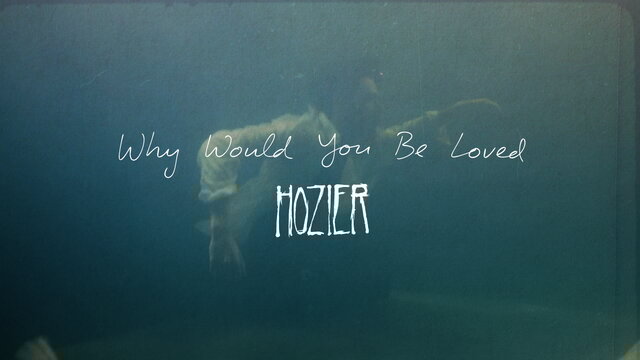 Why Would You Be Loved
HOZIER